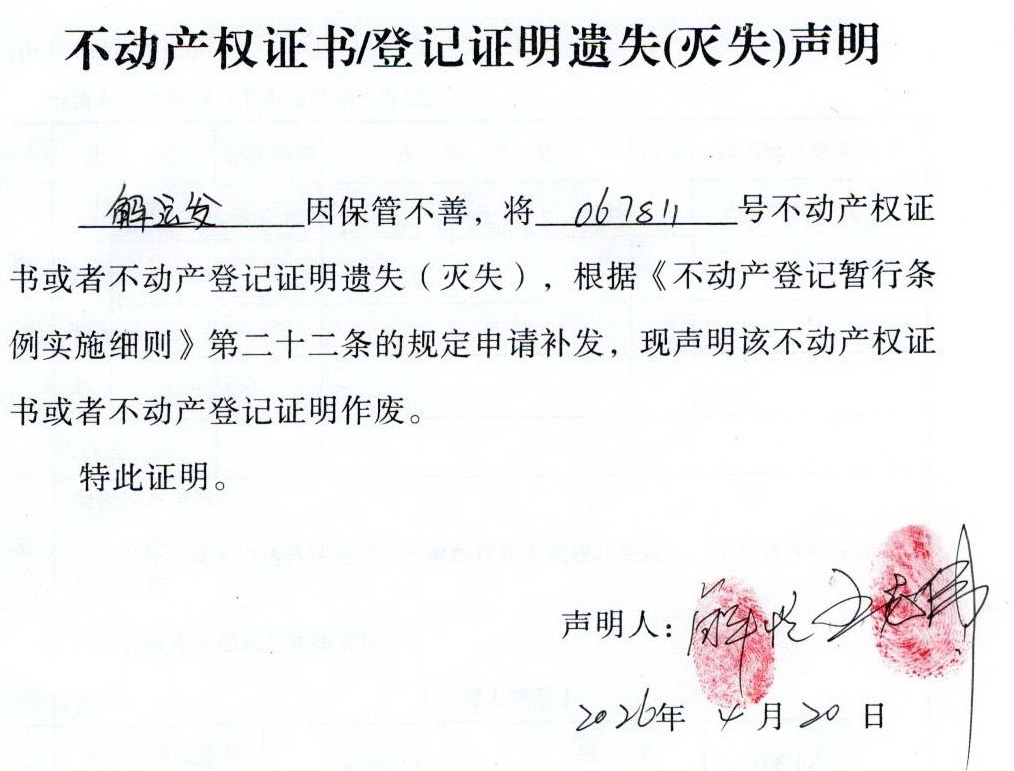 不动产权证书/登记证明遗失(灭失)声明
解运发因保管不善，将067811号不动产权证
书或者不动产登记证明遗失（灭失），根据《不动产登记暂行条
例实施细则》第二十二条的规定申请补发，现声明该不动产权证
书或者不动产登记证明作废。
特此证明。
声明人：解
2026年 4月20日